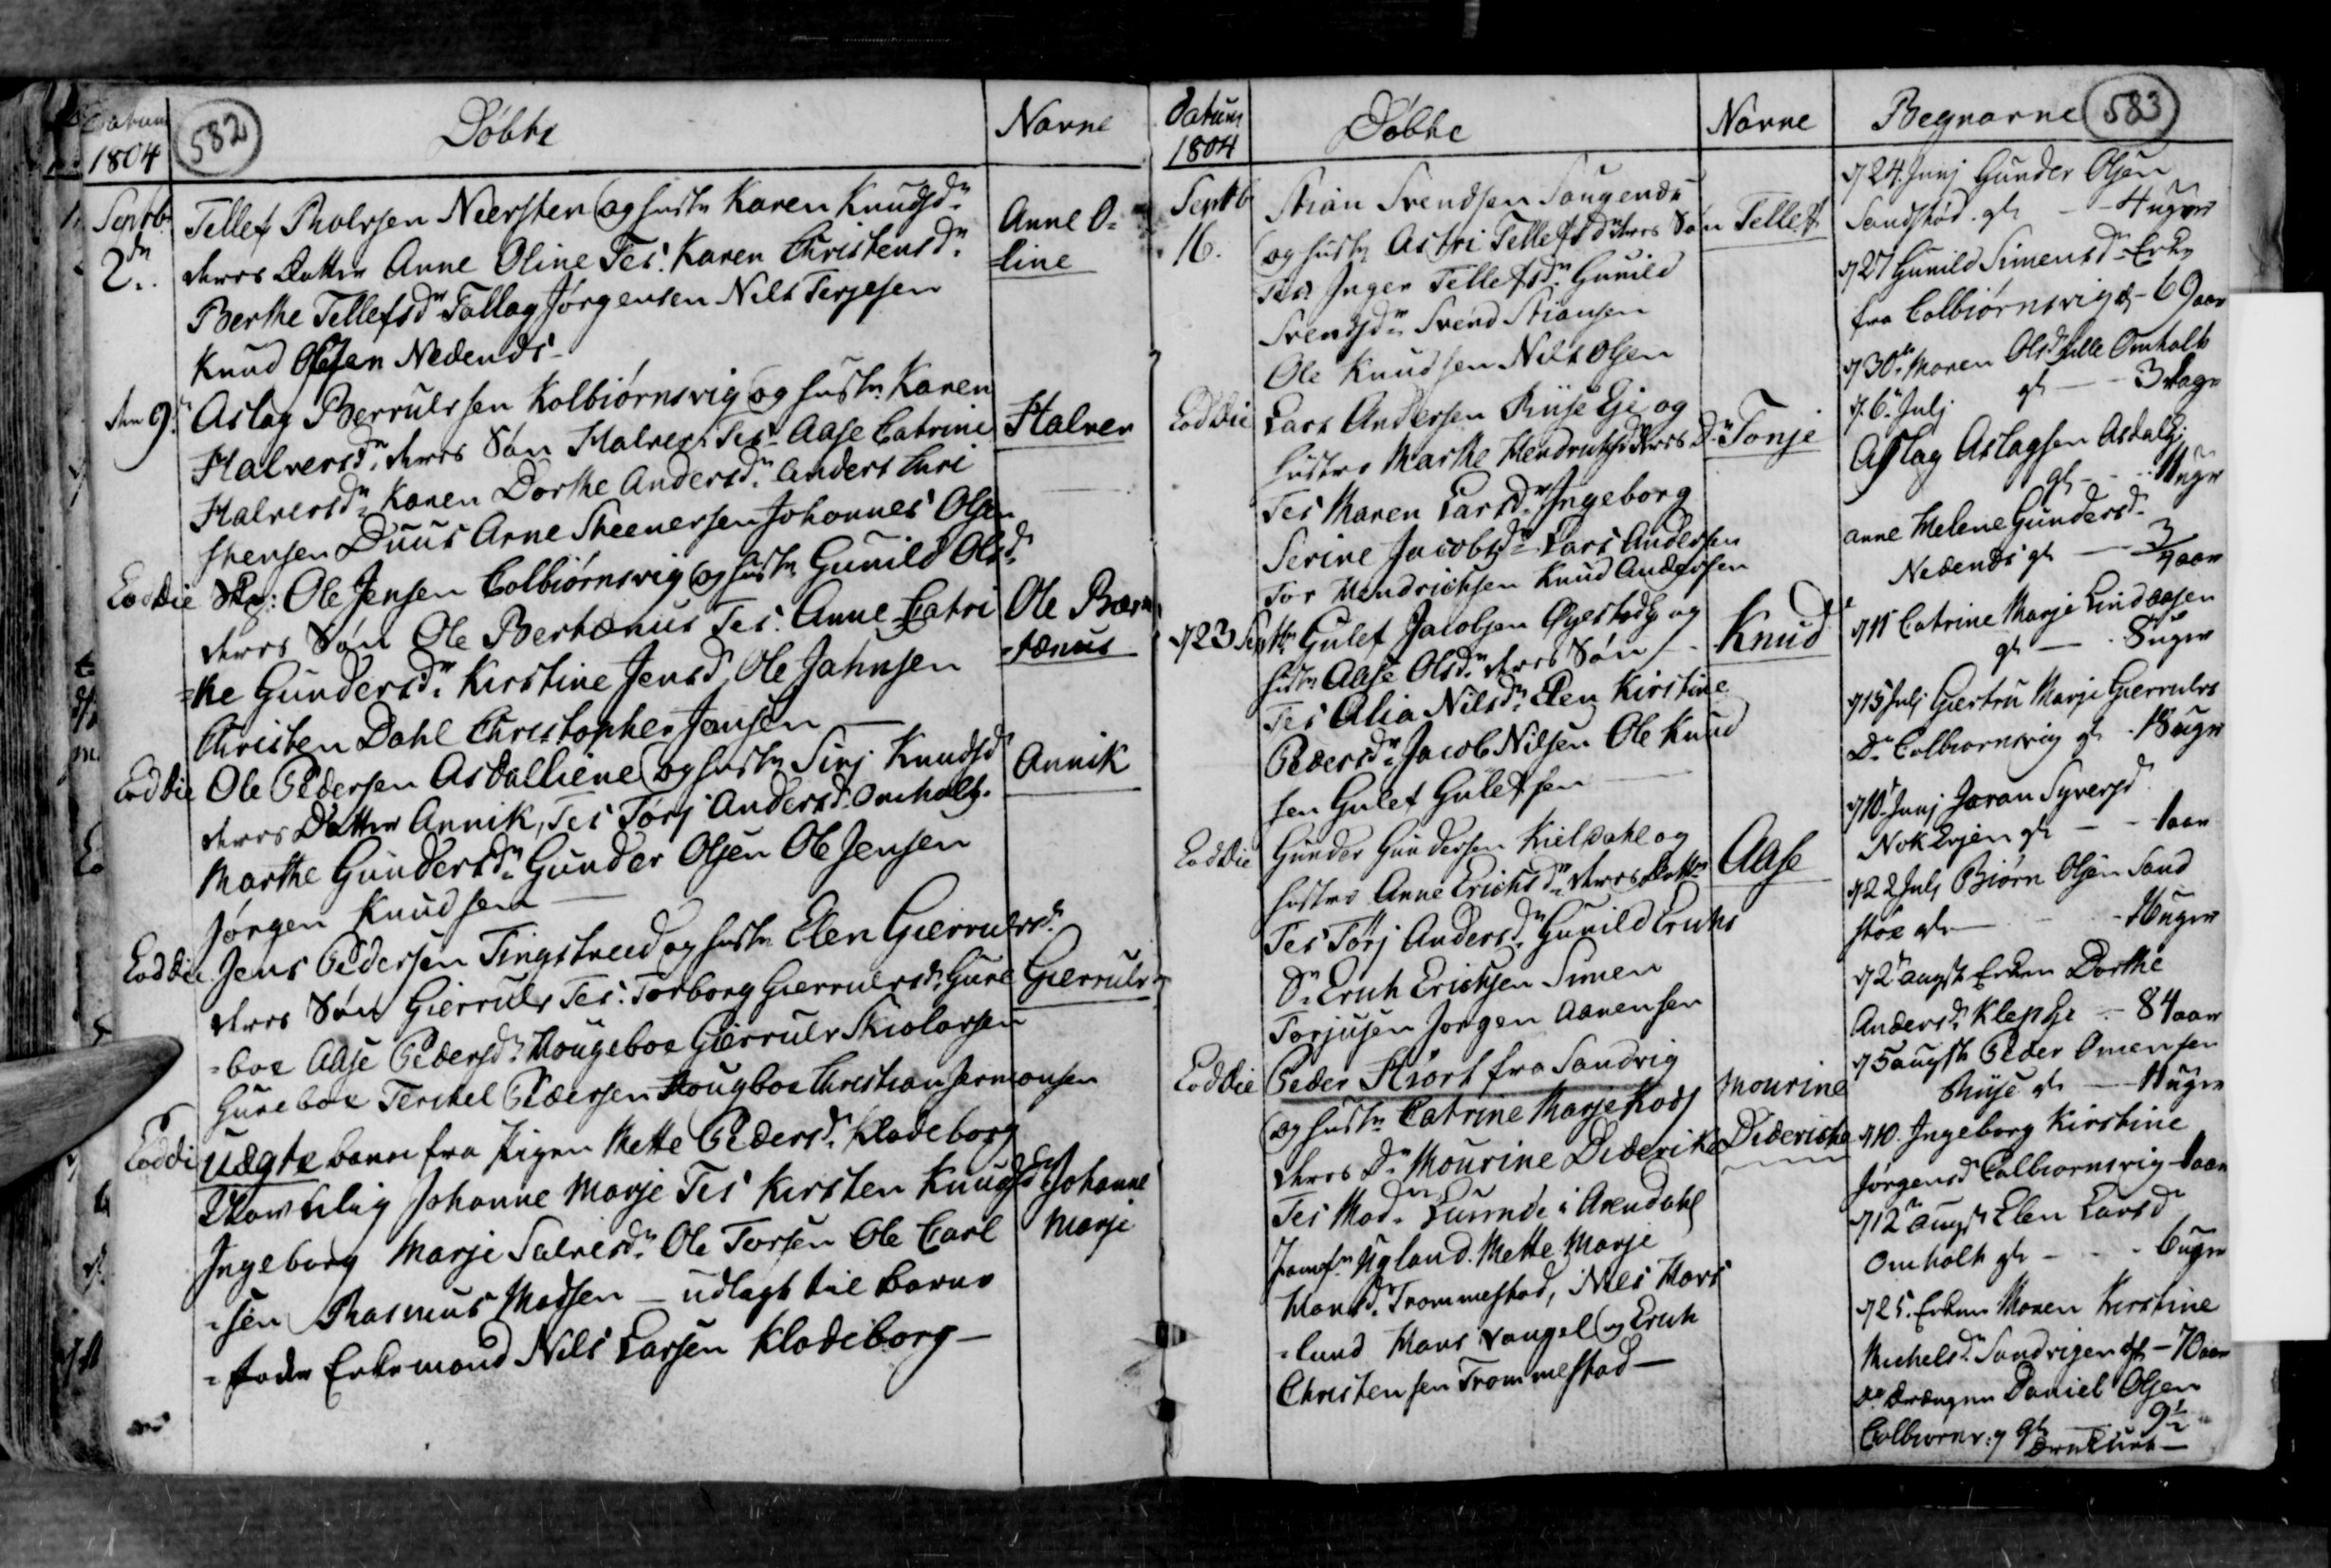 Datum
1804
582
Døbte
Navne
Septbr
2dn
Tellef Rolvsen Neersten og hustr Karen Knudsdr
deres datter Anne Oline Tes. Karen Christensdr
Berthe Tellefsdr Tallag Jørgensen Nils Terjesen
Knud Olesen Nedenes
Anne O-
line
den 9.
Aslag Berrulvsen Kolbiørnsvig og hustr Karen
Halversdr deres Søn Halver Tes. Aase Catrine
Halversdr Karen Dorthe Andersdr Anders Lari
stensen Duus Arne Steenersen Johannes Olsen
Halver
Eod die
Ole Jensen Colbiørnsvig og hustr Gunild Olsdr
deres Søn Ole Bertanus Tes. Anne Catri
-ne Gundersdr Kirstine Jensdr Ole Jahnsen
Christen Dahl Christopher Jansen
Ole Bær
-tanus
Eod die
Ole Pedersen Asdalliene og hustr Sirj Knudsdr
deres Datter Annik, Tes Torj Andersdr Omholt.
Marthe Gundersdr Gunder Olsen Ole Jensen
Jørgen Knudsen
Annik
Eod die
Jens Pedersen Tingstveed og hustr Elen Gierrulvsdr
deres Søn Gierrulv Tes. Torborg Gierrulvsdr Gure
-boe Aase Pedersdr Hougeboe Gierrulv Kiolorsen
Gureboe Terchel Pedersen Hougboe Christian Jermonsen
Gierrulv
Eod di
uægte barn fra Pigen Mette Pedersdr Klodeborg
navnlig Johanne Marje Tes Kirsten Knudsdr
Ingeborg Marje Salvesdr Ole Torsen Ole Carl
-sen Rasmus Madsen – udlagt til barne
-fader Enkemand Nils Larsen Klodeborg –
Johanne
Marje
Datum
1804
Døbte
Navne
Septb
16.
Stian Svendsen Sougendr
og hustr Astri Tellefsdr deres Søn
Tes Inger Tellefsdr Gunild
Svendsdr Svend Stiansen
Ole Knudsen Nils Olsen
Tellef
Eod die
Lars Andersen Riise Eje og
hustru Marthe Hendrichsdr deres Dr
Tes Maren Larsdr Ingeborg
Serine Jacobsdr Lars Andersen
Tor Hendrichsen Knud Andersen
Tonje
d 23 Septbr
Gulef Jacobsen Øyestad og
hustr Aase Olsdr deres Søn
Tes Alia Nilsdr Elen Kirstine
Pedersdr Jacob Nilsen Ole Knud
sen Gulef Gulefsen
Knud
Eod die
Gunder Gundersen Kieldahl og
hustru Anne Erichsdr deres datter
Tes Torj Andersdr Gunild Erichs
Dr Erich Erichsen Simen
Torjusen Jørgen Aanensen
Aase
Eod die
Peder Hiort fra Sandvig
og hustr Catrine Marje Kodj
deres Dr Mourine Diderike
Tes Madm Luumde i Arendahl
Jomfr Ugland. Mette Marje
Hansdr Trommestad, Niels Hars
-lund Hans Vangel og Erich
Christensen Trommestad –
Mourine
Diderica
Begravne
583
d 24. Junj Gunder Olsen
Sandstød. gl – 4 uger
d 27 Gunild Simensdr Enke
fra Colbiørnsvig gl – 69 aar
d 30te Maren Olsdr Omholt
gl – 3 dage
d. 6. Julj
Aslag Aslagsen Asdal
gl – uger
Anne Helene Gundersdr
Nedenes gl – aar
d 11 Catrine Marje Lindaasen
gl – 8 uger
d 15 Julj Giertru Marje Gierrulvs
Dr Colbiornsvig gl. 18 uger
d 10. Junj Joran Syversdr
gl – 1 aar
d 22 Julj Biørn Olsen Sand
støe gl – uger
d 2 augst Enken Dorthe
Andersdr Klep – 84 aar
d 5 augst Peder Omensen
Riise gl – 11 uger
d 10. Ingeborg Kirstine
Jørgensdr Colbiornsvig 1 aar
d 12te augst Elen Larsdr
Omholt gl – 6 uger
d 25. Enken Maren Kirstine
Michelsdr Sandvigen gl – 70 aar
Drengen Daniel Olsen
Colbiorns gl 9½